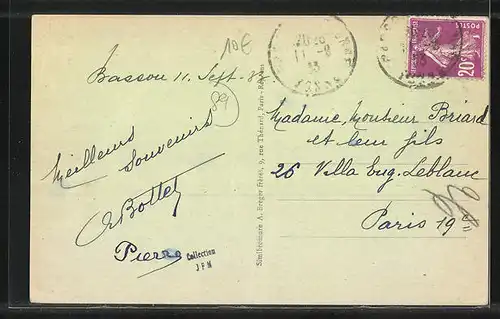 10€
Bassou 11 Sept. 33
89
Meilleurs
Souvenirs
Bottet
Pierre
Collection
J F M
Similibromure A. Breger frères, 9, rue Thénard, Paris
20 15
11 - 9
33
YONNE
POSTES
20c
Madame, Monsieur Briard
et leur fils
26 Villa Eug. Leblanc
Paris 19